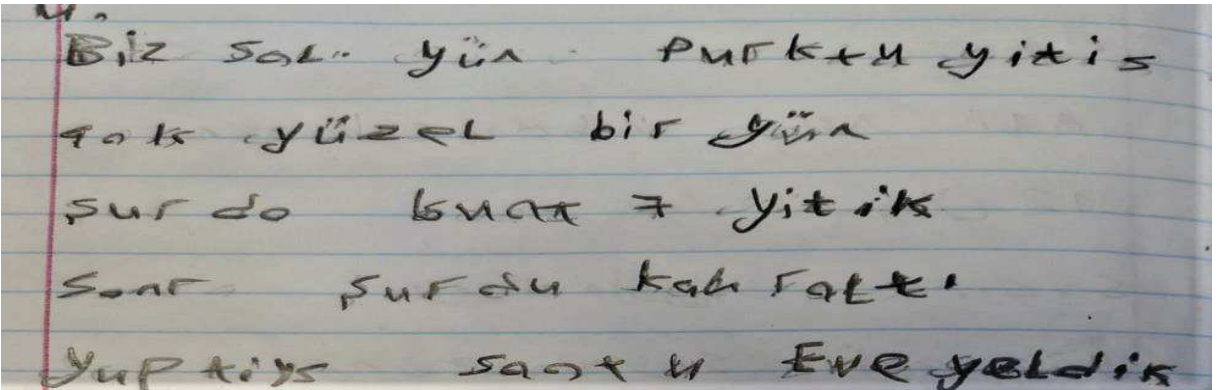 Biz Salı yün Purktu yitis
çok yüzel bir yün
şur do buat 7 yitik
Sonr şurdu kah Faltı
yuptiys saat u Eve yeldik